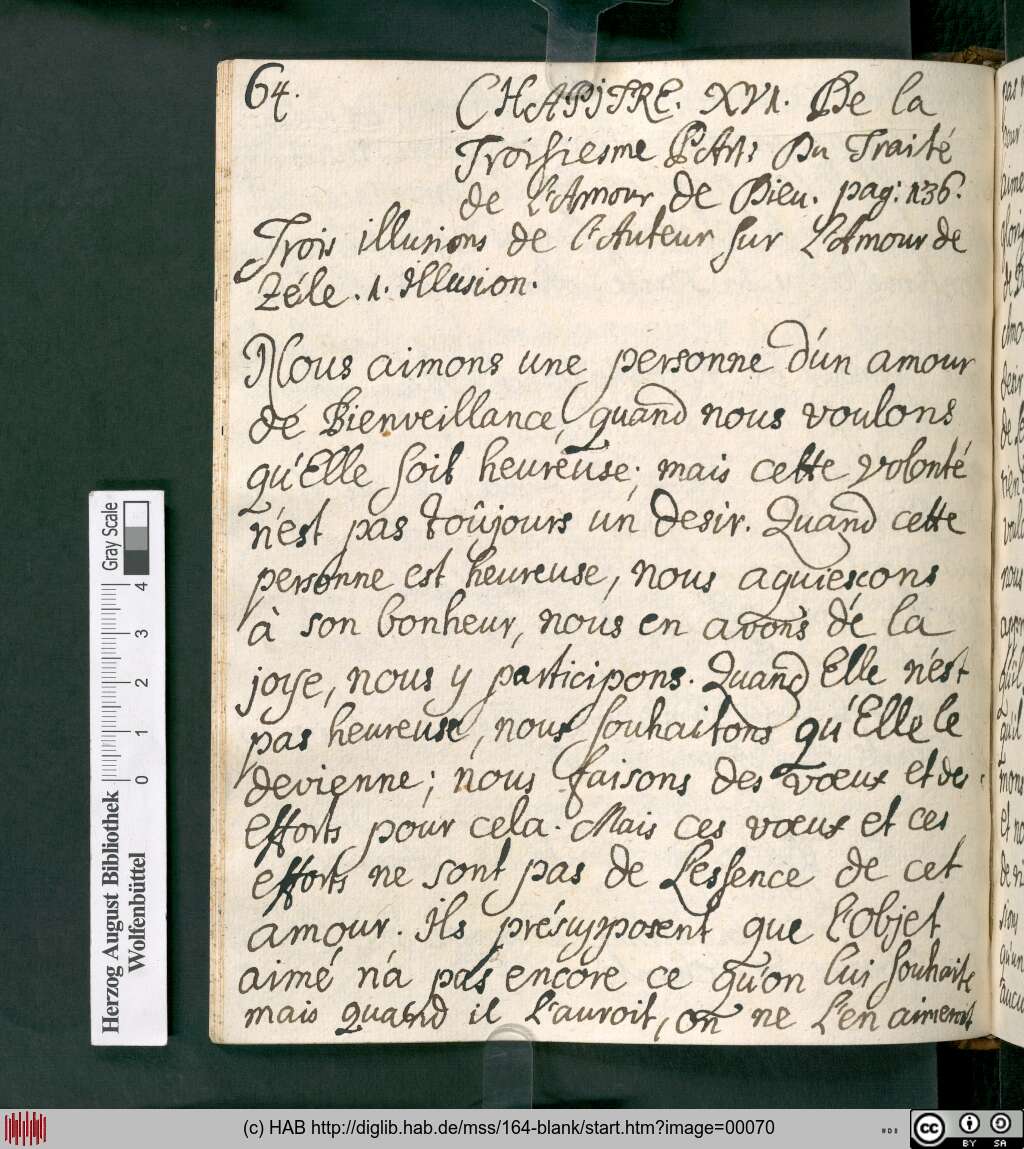 64.
CHAPITRE. XVI. De la
Troisiesme Part: Du Traité
de L'Amour de Dieu. pag: 136.
Trois illusions de l'Auteur sur L'Amour de
Zéle. 1. Illusion.
Nous aimons une personne d'un amour
de Bienveillance, quand nous voulons
qu'Elle soit heureuse; mais cette volonté
n'est pas toûjours un desir. Quand cette
personne est heureuse, nous aquiesçons
à son bonheur, nous en avons de la
joye, nous y participons. Quand Elle n'est
pas heureuse, nous souhaitons qu'Elle le
devienne; nous faisons des vœux et des
efforts pour cela. Mais ces vœux et ces
efforts ne sont pas de L'essence de cet
amour. Ils présupposent que l'objet
aimé n'a pas encore ce qu'on lui souhaite
mais quand il L'auroit, on ne L'en aimeroit
Gray Scale
0 1 2 3 4
Herzog August Bibliothek
Wolfenbüttel
(c) HAB http://diglib.hab.de/mss/164-blank/start.htm?image=00070
cc BY SA